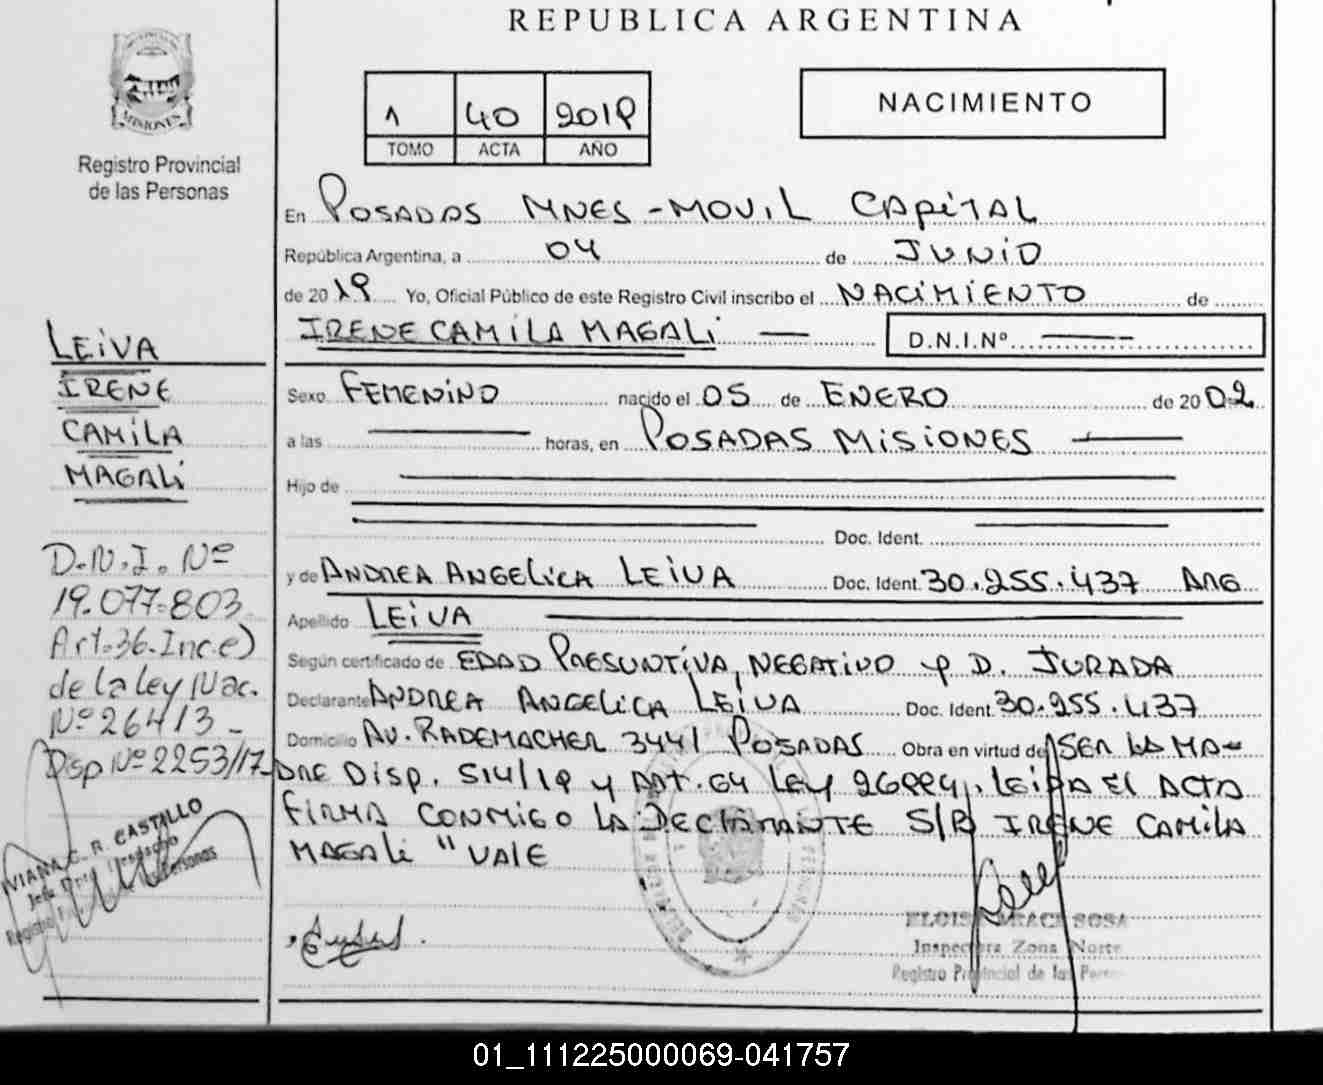 REPUBLICA ARGENTINA
MISIONES
Registro Provincial
de las Personas
1 40 2019
TOMO ACTA AÑO
NACIMIENTO
En POSADAS MNES - MOVIL CAPITAL
República Argentina, a 04 de JUNIO
de 2019 Yo, Oficial Público de este Registro Civil inscribo el NACIMIENTO de
IRENE CAMILA MAGALI D.N.I.Nº
Sexo FEMENINO nacido el 05 de ENERO de 2002
a las horas, en POSADAS MISIONES
Hijo de
Doc. Ident.
y de ANDREA ANGELICA LEIVA Doc. Ident. 30.255.437 ARG
Apellido LEIVA
Según certificado de EDAD PRESUNTIVA, NEGATIVO y D. JURADA
Declarante ANDREA ANGELICA LEIVA Doc. Ident. 30.255.437
Domicilio AV. RADEMACHER 3441 POSADAS Obra en virtud de SER LA MA-
DRE DISP. 514/19 y ART. 64 LEY 26994, LEIDA EL ACTA
FIRMA CONMIGO LA DECLARANTE S/R IRENE CAMILA
MAGALI "VALE
LEIVA
IRENE
CAMILA
MAGALI
D.N.I. Nº
19.077.803
Art. 36. Inc. e)
de la ley Nac.
Nº 26413 -
Dsp Nº 2253/17
VIANA C. R. CASTALLO
SOSA
Inspectora Zona Norte
Registro Provincial de las
01_111225000069-041757